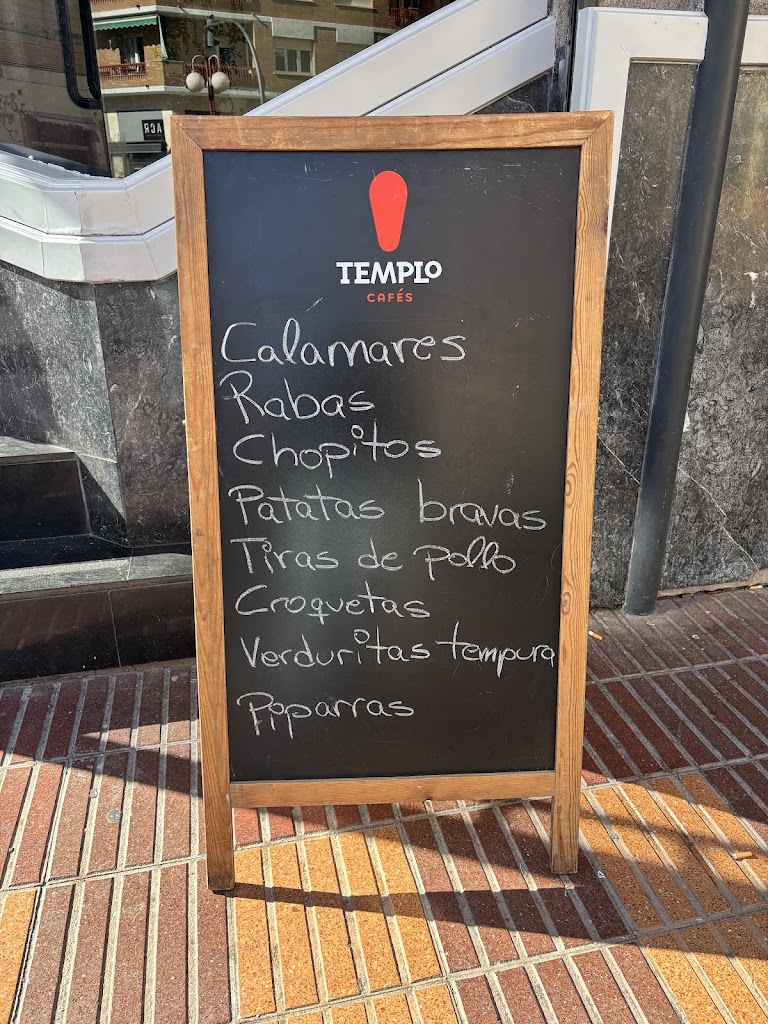 TEMPLO
CAFÉS
Calamares
Rabas
Chopitos
Patatas bravas
Tiras de pollo
Croquetas
Verduritas tempura
Piparras